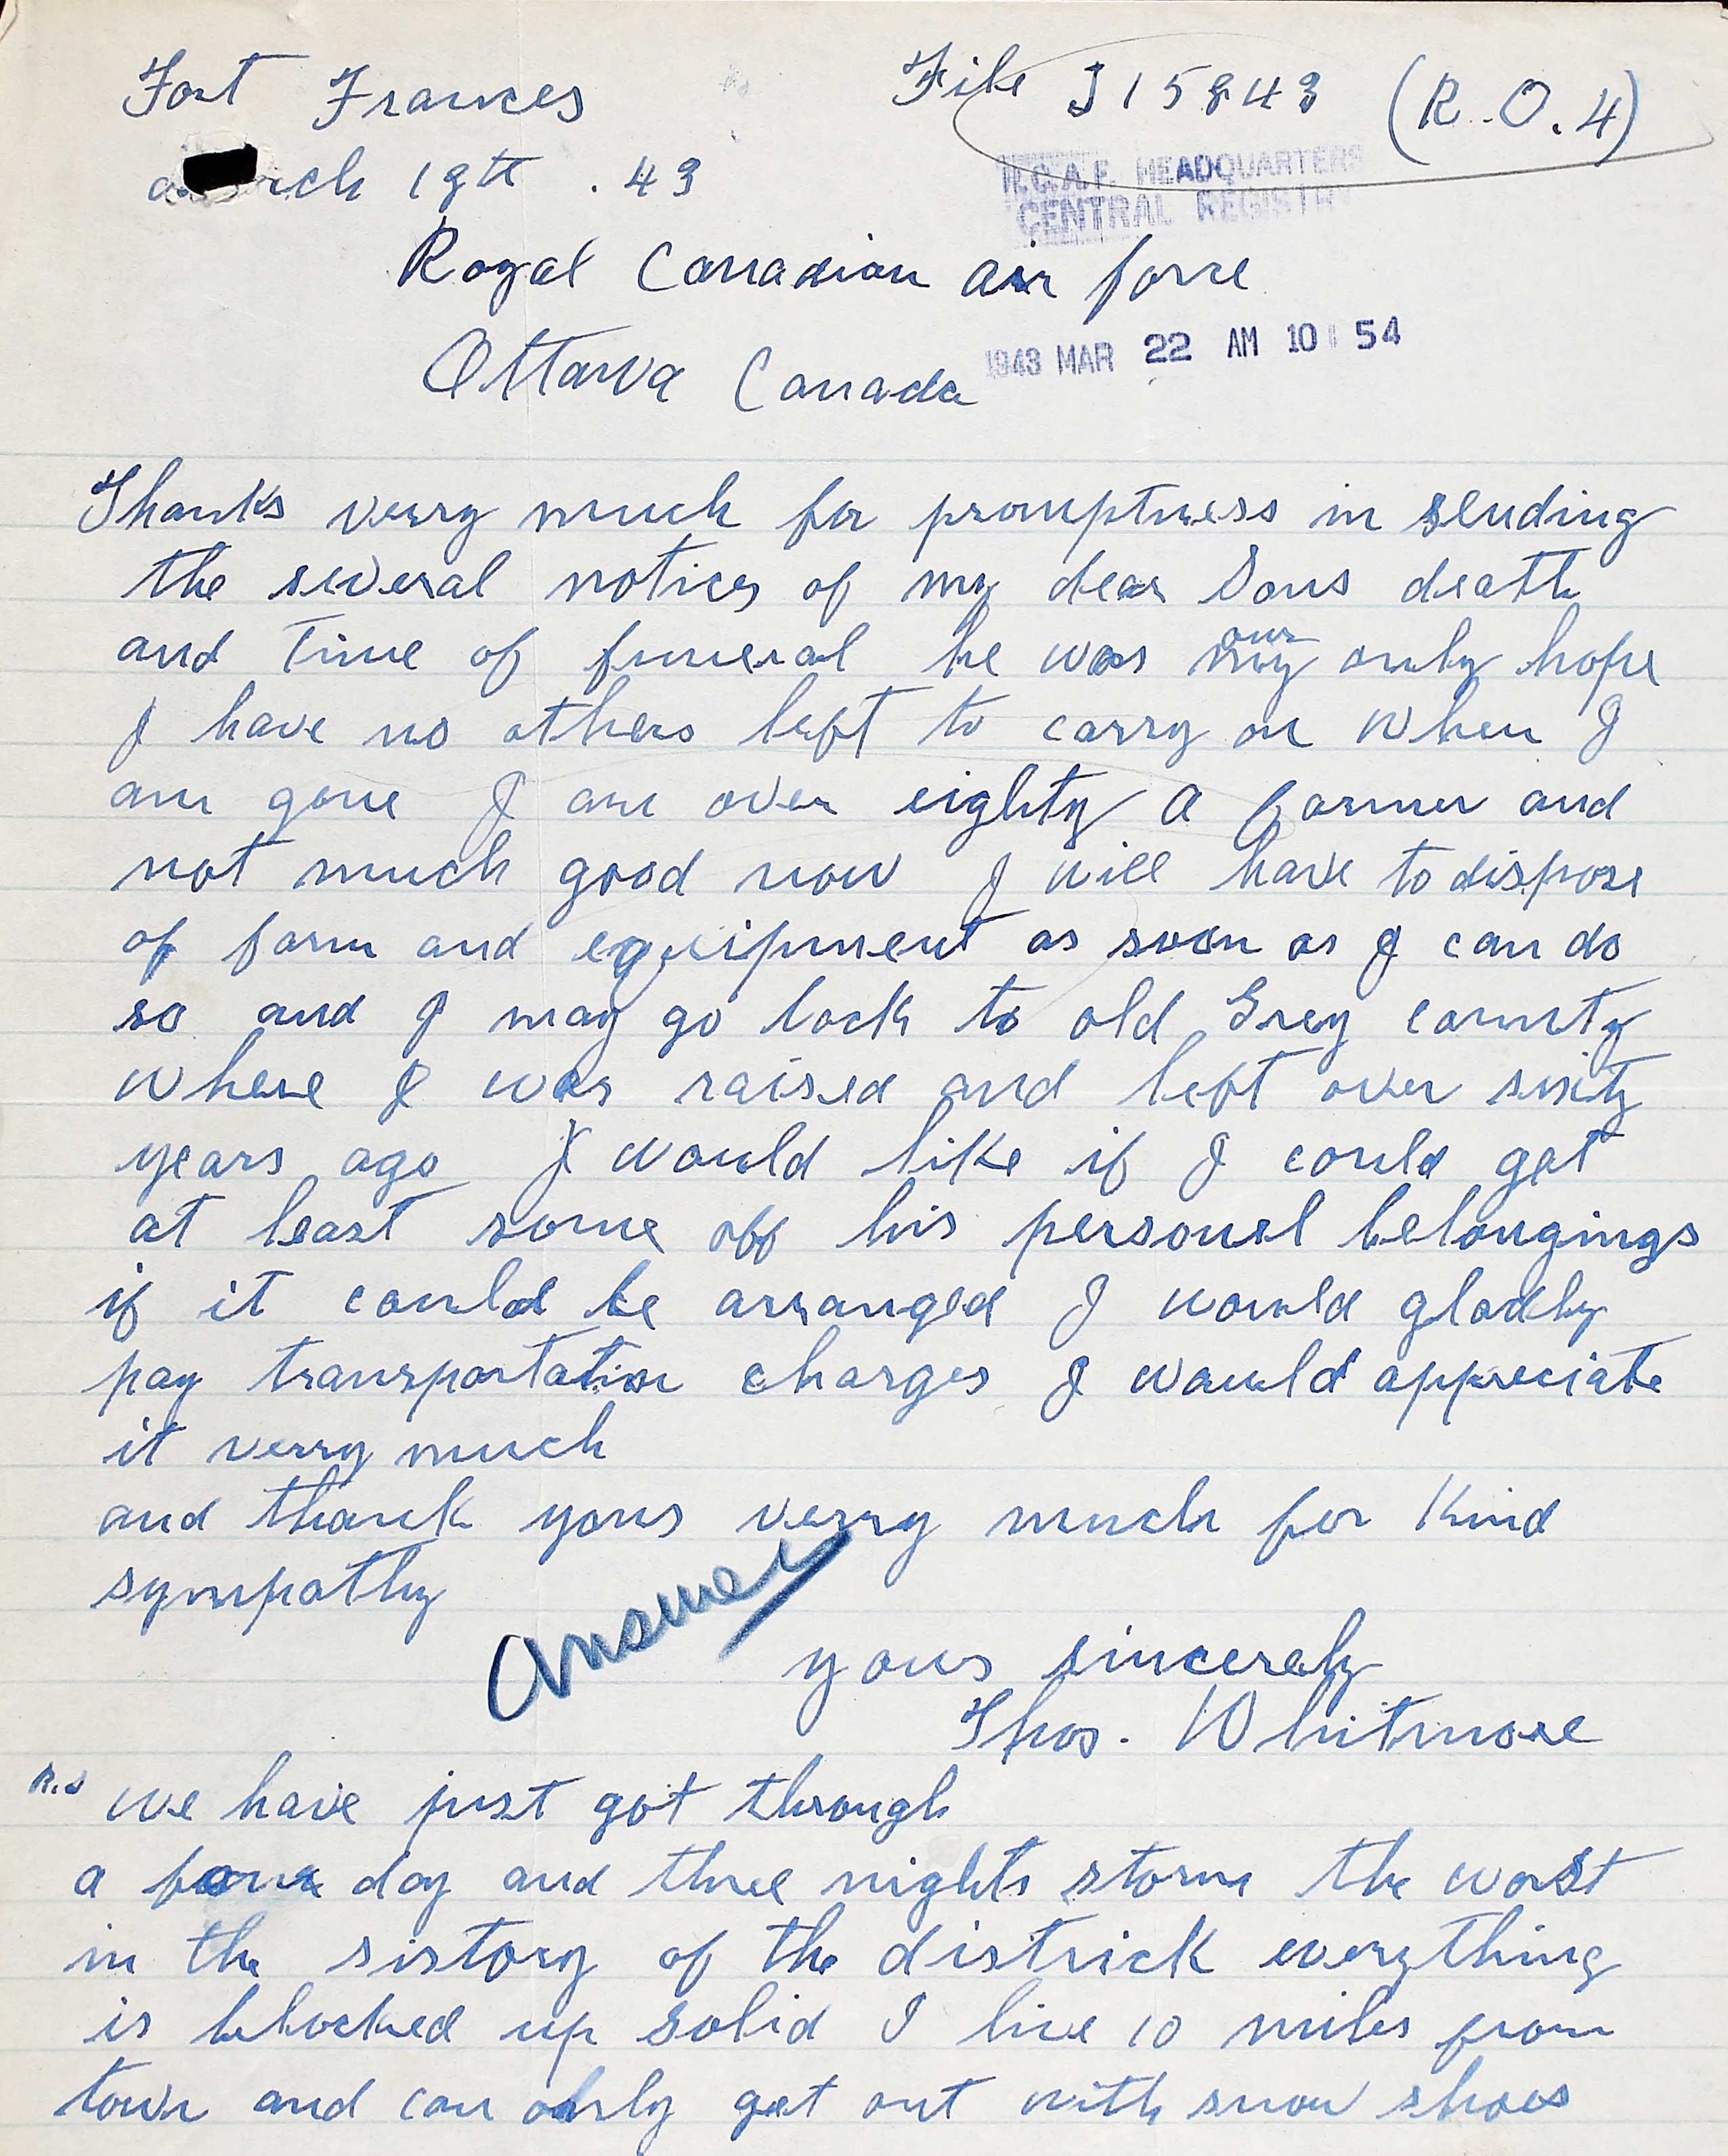 Fort Frances
File J15843 (R.O.4)
March 18th . 43
R.C.A.F. HEADQUARTERS
CENTRAL REGISTRY
Royal Canadian air force
Ottawa Canada
1943 MAR 22 AM 10 54
Thanks verry much for promptness in sending
the several notices of my dear Sons death
and Time of funeral he was our my only hope
I have no others left to carry on when I
am gone I am over eighty a farmer and
not much good now I will have to dispose
of farm and eqquipment as soon as I can do
so and I may go back to old Grey county
where I was raised and left over sixty
years ago I would like if I could get
at least some off his personel belongings
if it could be arranged I would gladly
pay transportation charges I would appreciate
it verry much
and thank yous verry much for Kind
sympathy
Answer
yours sincerely
Thos. Whitmore
we have just got through
a four day and three nights storm the worst
in the sistory of the districk everything
is blocked up solid I live 10 miles from
town and can only get out with snow shoes